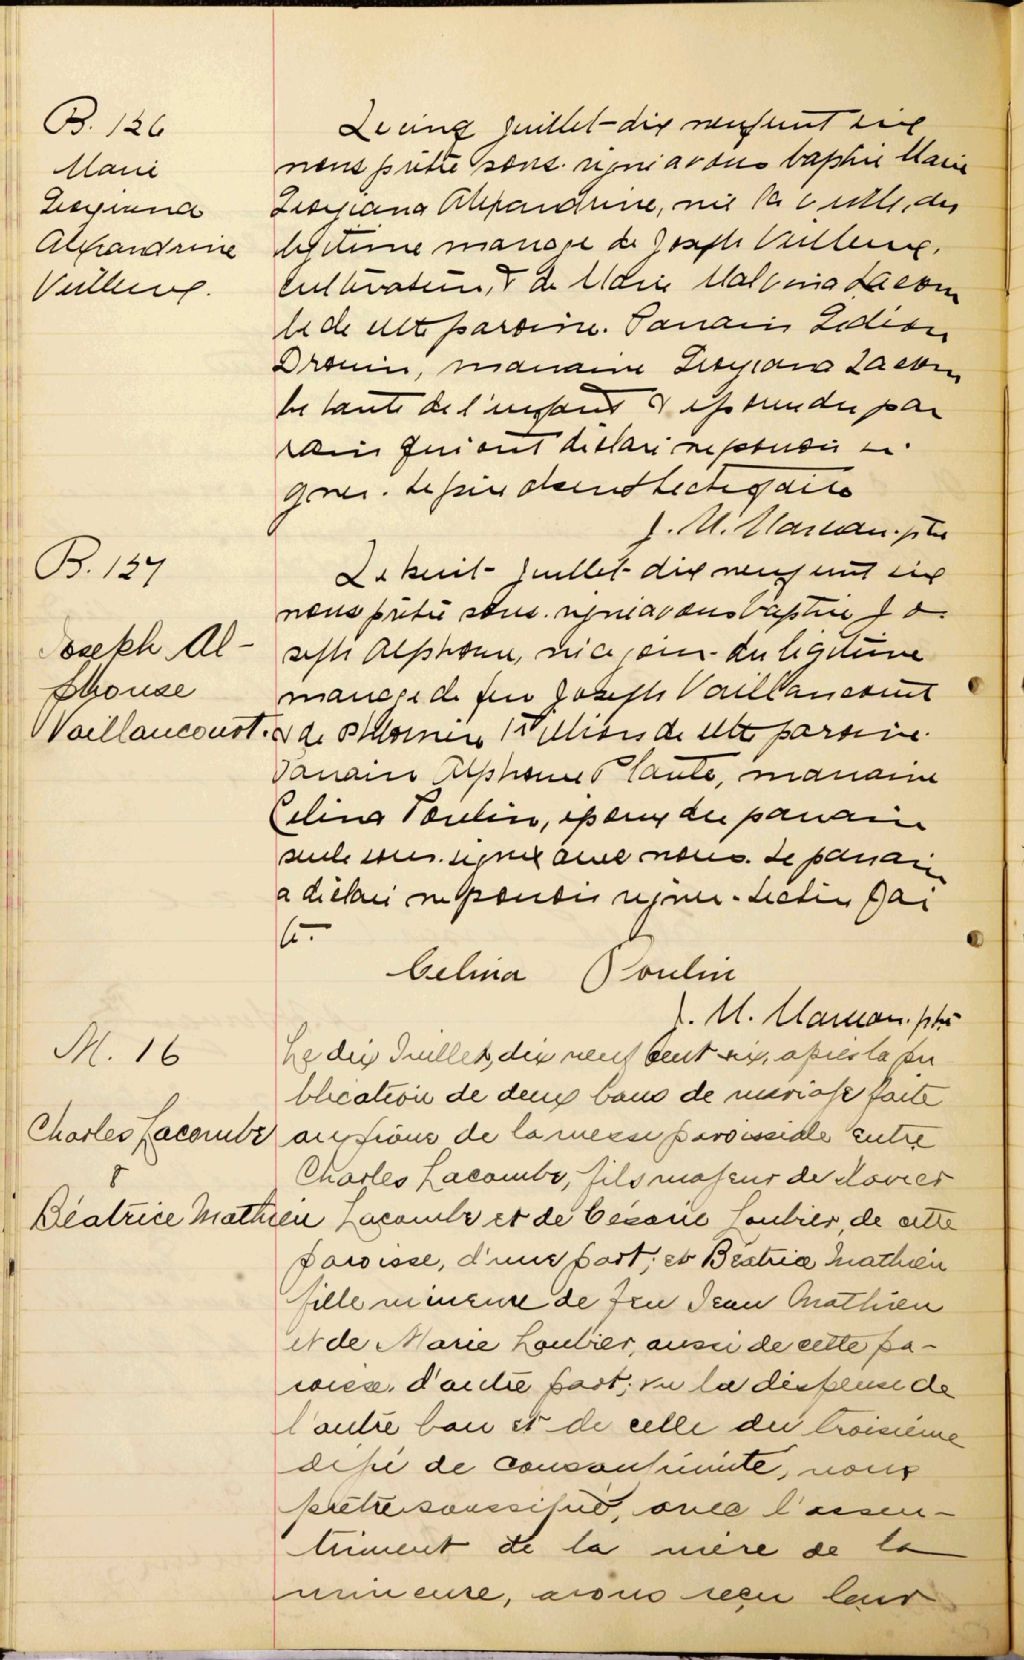 B. 126
Marie
Georgiana
Alexandrine
Veilleux.
Le cinq juillet dix neuf cent six
nous prêtre sous-signé avons baptisé Marie
Georgiana Alexandrine, née la veille, du
légitime mariage de Joseph Veilleux,
cultivateur, & de Marie Malvina Lacom
be de cette paroisse. Parrain Gédéon
Drouin, marraine Georgiana Lacom
be tante de l'enfant & épouse du par
rain qui ont déclaré ne pouvoir si-
gner. Le père absent. Lecture faite
J. M. ptre
B. 127
Joseph Al-
phonse
Vaillancourt.
Le huit juillet dix neuf cent six
nous prêtre sous-signé avons baptisé Jo-
seph Alphonse, né ce jour du légitime
mariage de feu Joseph Vaillancourt
& de de cette paroisse.
Parrain Alphonse Plante, marraine
Celina Poulin, épouse du parrain
seule sous-signée avec nous. Le parrain
a déclaré ne pouvoir signer. Lecture fai
te.
Celina Poulin
J. M. ptre
M. 16
Charles Lacombe
&
Béatrice Mathieu
Le dix Juillet, dix neuf cent six, après la pu
blication de deux bans de mariage faite
au prône de la messe paroissiale entre
Charles Lacombe, fils majeur de Xavier
Lacombe et de Césarie Loubier, de cette
paroisse, d'une part; et Béatrice Mathieu
fille mineure de feu Jean Mathieu
et de Marie Loubier, aussi de cette pa-
roisse, d'autre part; vu la dispense de
l'autre ban et de celle du troisième
degré de consanguinité, nous
prêtre soussigné, avec l'assen-
timent de la mère de la
mineure, avons reçu leur